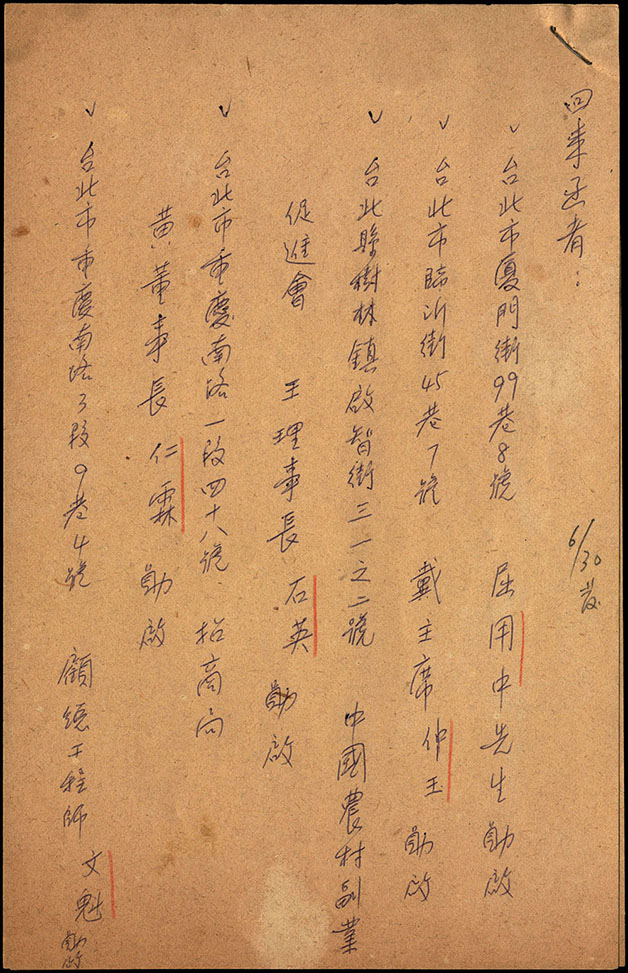 回來函者：
6/30發
台北市廈門街99巷8號 屈用中先生 勛啟
台北市臨沂街45巷7號 戴主席仲玉 勛啟
台北縣樹林鎮啟智街三一之二號 中國農村副業
促進會 王理事長石英 勛啟
台北市重慶南路一段四十八號 招商局
黃董事長仁霖 勛啟
台北市重慶南路3段9巷4號 顧總工程師文魁 勛啟